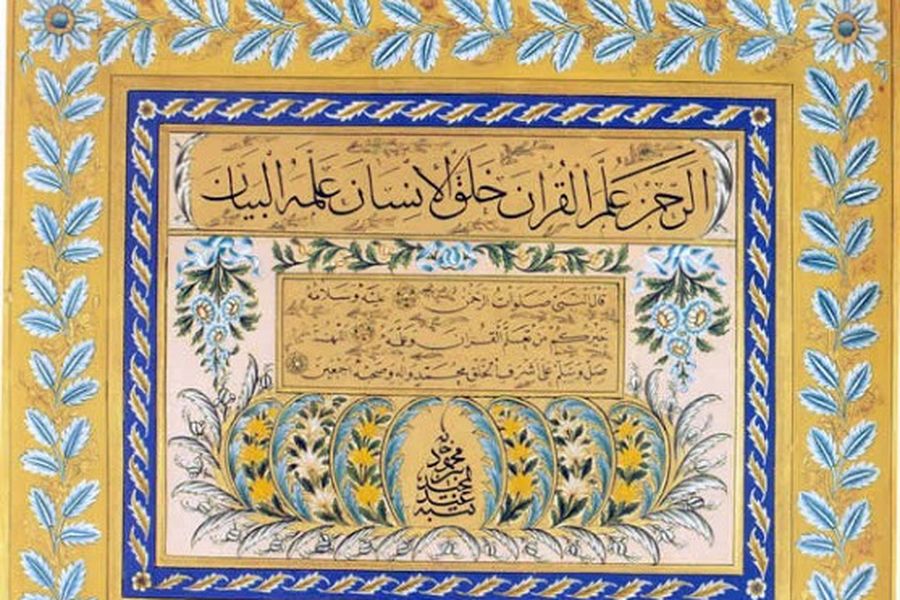 الرحمن علم القران خلق الانسان علمه البيان
قال النبي صلوات الرحمن عليه وسلامه
خيركم من تعلم القران وعلمه اللهم
صل وسلم على اشرف الخلق محمد واله وصحبه اجمعين
كتبه عبد المجيد بن محمود خان